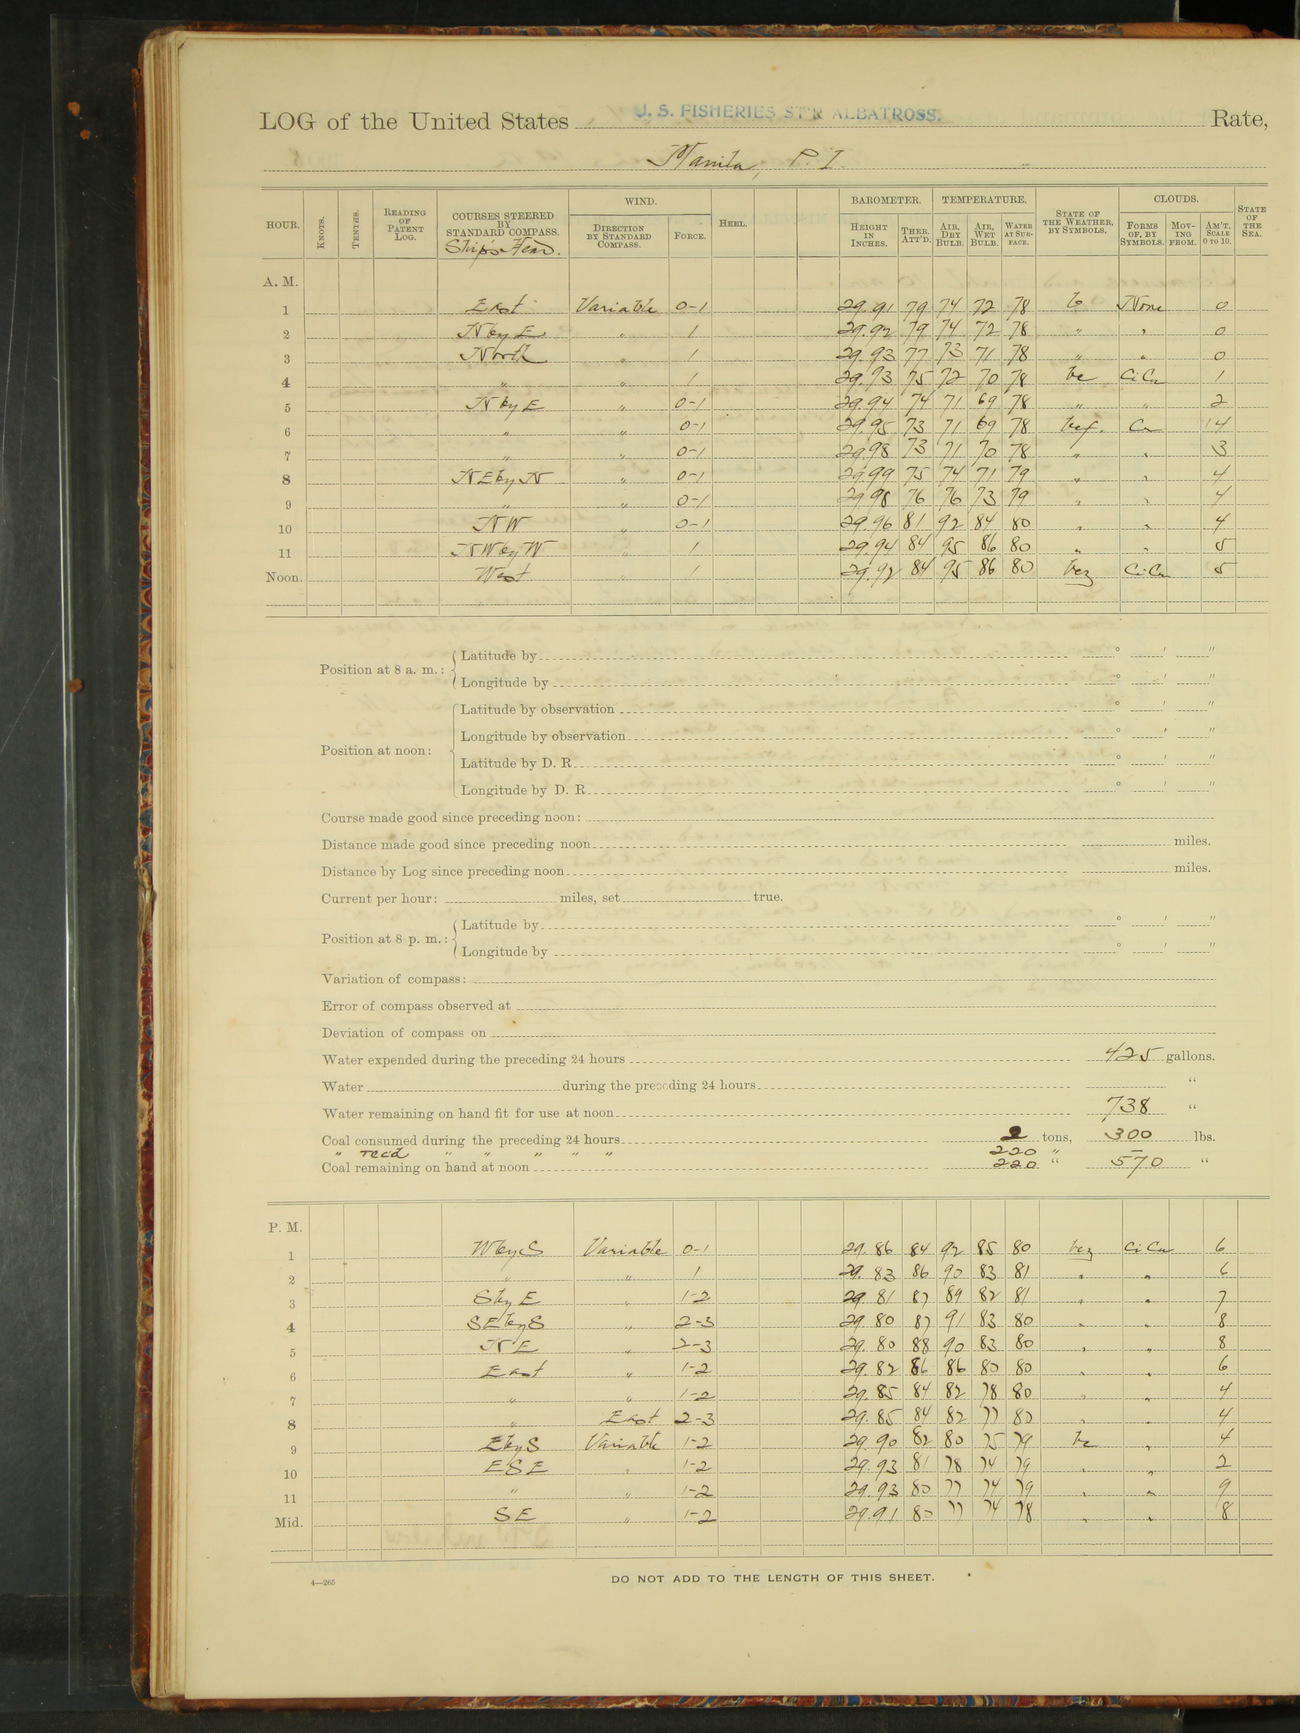 LOG of the United States U. S. FISHERIES ST'R ALBATROSS. Rate,
Manila, P. I.
HOUR. KNOTS. TENTHS. READING OF PATENT LOG. COURSES STEERED BY STANDARD COMPASS. Ship's Head. WIND. DIRECTION BY STANDARD COMPASS. FORCE. HEEL. BAROMETER. HEIGHT IN INCHES. THER. ATT'D. TEMPERATURE. AIR, DRY BULB. AIR, WET BULB. WATER AT SURFACE. STATE OF THE WEATHER, BY SYMBOLS. CLOUDS. FORMS OF, BY SYMBOLS. MOVING FROM. AM'T, SCALE 0 TO 10. STATE OF THE SEA.
A. M.
1 East Variable 0-1 29.91 79 74 72 78 b None 0
2 N by E " 1 29.92 79 74 72 78 " " 0
3 North " 1 29.93 77 73 71 78 " " 0
4 " " 1 29.93 75 72 70 78 bc Ci Cu 1
5 N by E " 0-1 29.94 74 71 69 78 " " 2
6 " " 0-1 29.95 73 71 69 78 bcf. Cu 4
7 " " 0-1 29.98 73 71 70 78 " " 3
8 NE by N " 0-1 29.99 75 74 71 79 " " 4
9 " " 0-1 29.98 76 76 73 79 " " 4
10 NW " 0-1 29.96 81 92 84 80 " " 4
11 NW by W " 1 29.94 84 95 86 80 " " 5
Noon. West " 1 29.92 84 95 86 80 bcz Ci Cu 5
Position at 8 a. m.: Latitude by ° ' "
Longitude by ° ' "
Position at noon: Latitude by observation ° ' "
Longitude by observation ° ' "
Latitude by D. R. ° ' "
Longitude by D. R. ° ' "
Course made good since preceding noon:
Distance made good since preceding noon miles.
Distance by Log since preceding noon miles.
Current per hour: miles, set true.
Position at 8 p. m.: Latitude by ° ' "
Longitude by ° ' "
Variation of compass:
Error of compass observed at
Deviation of compass on
Water expended during the preceding 24 hours 425 gallons.
Water during the preceding 24 hours "
Water remaining on hand fit for use at noon 738 "
Coal consumed during the preceding 24 hours 2 tons, 300 lbs.
" recd " " " " " 220 " —
Coal remaining on hand at noon 220 " 570 "
P. M.
1 W by S Variable 0-1 29.86 84 92 85 80 bcz Ci Cu 6
2 " " 1 29.83 86 90 83 81 " " 6
3 S by E " 1-2 29.81 87 89 82 81 " " 7
4 SE by S " 2-3 29.80 87 91 83 80 " " 8
5 NE " 2-3 29.80 88 90 83 80 " " 8
6 East " 1-2 29.82 86 86 80 80 " " 6
7 " " 1-2 29.85 84 82 78 80 " " 4
8 " East 2-3 29.85 84 82 77 80 " " 4
9 E by S Variable 1-2 29.90 82 80 75 79 bc " 4
10 ESE " 1-2 29.93 81 78 74 79 " " 2
11 " " 1-2 29.93 80 77 74 79 " " 9
Mid. SE " 1-2 29.91 80 77 74 78 " " 8
4—265
DO NOT ADD TO THE LENGTH OF THIS SHEET.